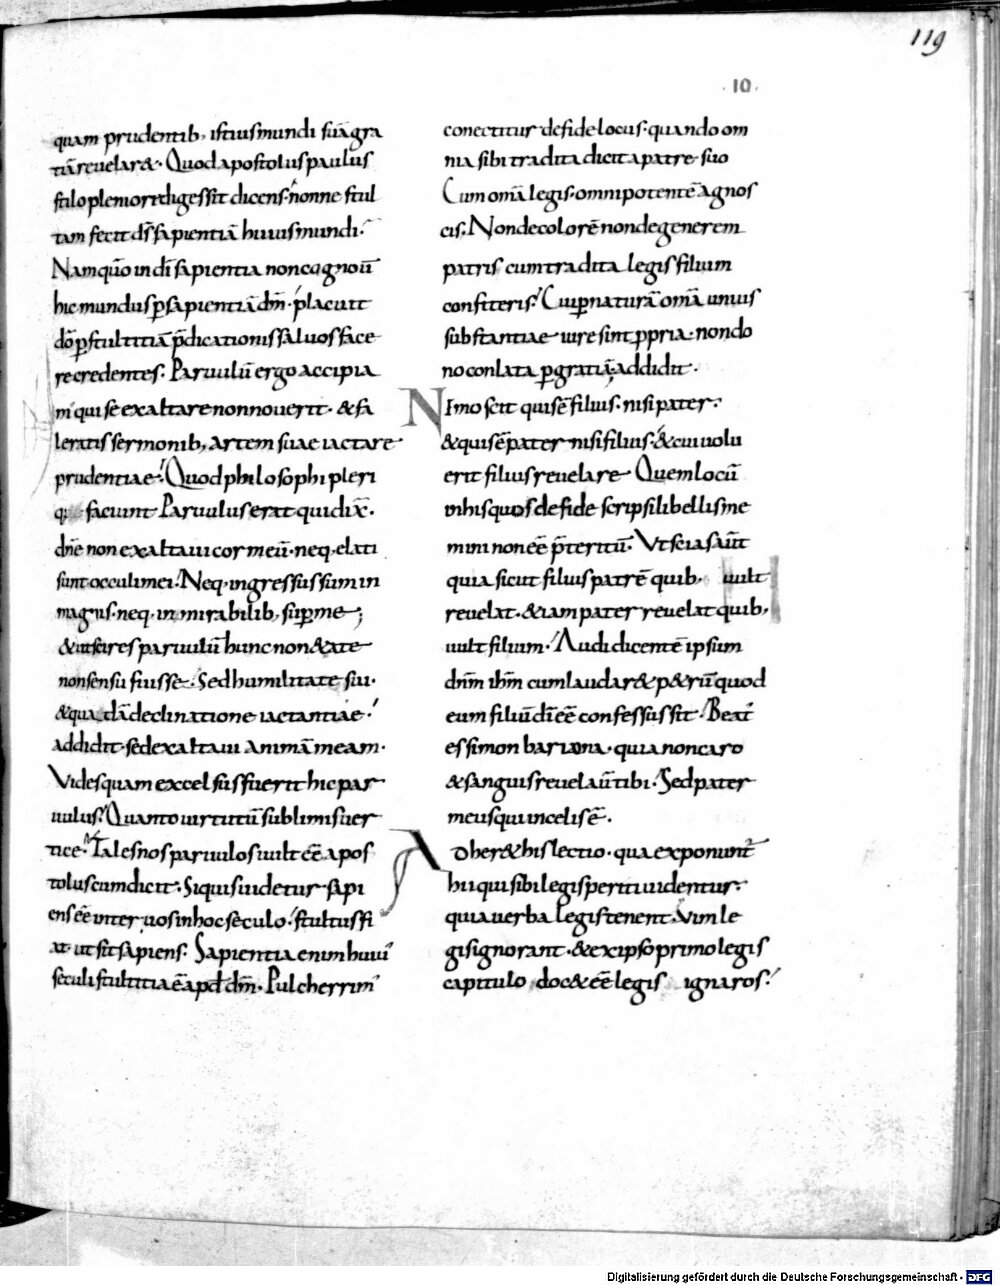 119
·10·
quam prudentib; istius mundi suā gra
tiā reuelar&. Quod apostolus paulus
stilo pleniore digessit dicens. nonne stul
tam fecit d̄s sapientiā huius mundi.
Nam quō in dī sapientia non cognouͭ
hic mundus ꝑ sapientiā dm̄. placuit
dō ꝑ stultitiā p̄dicationis saluos face
re credentes. Paruulū ergo accipia
m' qui se exaltare non nouerit. & fa
leratis sermonib; artem suae iactare
prudentiae. Quod philosophi pleri
q; faciunt Paruulus erat qui dix̄.
dn̄e non exaltaui cor meū. neq; elati
sunt occuli mei. Neq; ingressus sum in
magnis. neq; in mirabilib; suꝑ me;
& ut scires paruulū hunc non &ate
non sensu fuisse. Sed humilitate sui.
& quadā declinatione iactantiae.
addidit. sed exaltaui animā meam.
Vides quam excelsus fuerit hic par
uulus. Quanto uirtutū sublimis uer
tice. Tales nos paruulos uult ēē apos
tolus cum dicit. Si quis uidetur sapi
ens ēē inter uos in hoc seculo. stultus fi
at. ut sit sapiens. Sapientia enim huiu'
seculi stultitia ē apd' dm̄. Pulcherrim'
conectitur de fide locus. quando om
nia sibi tradita dicit a patre suo
Cum omā legis. omnipotentē agnos
cis. Non decolorē non degenerem
patris cum tradita legis filium
confiteris. Cui ꝑ naturā omā unius
substantiae iure sint ꝓpria. non do
no conlata ꝑ gratiā addidit.
NEmo scit quis ē filius. nisi pater.
& quis ē pater nisi filius. & cui uolu
erit filius reuelare Quem locū
in his quos de fide scripsi libellis me
mini non ēē p̄teritū. Vt scias aūt
quia sicut filius patrē quib; uult
reuelat. & iam pater reuelat quib;
uult filium. Audi dicentē ipsum
dn̄m ihm̄ cum laudar& p&rū quod
eum filiū dī ēē confessus sit. Beat'
es simon bariona. quia non caro
& sanguis reuelaūt tibi. Sed pater
meus qui in celis ē.
Ad her& his lectio. qua exponunt'
hii qui sibi legis periti uidentur.
quia uerba legis tenent. Vim le
gis ignorant. & ex ipso primo legis
capitulo doc& ēē legis ignaros.
Digitalisierung gefördert durch die Deutsche Forschungsgemeinschaft - DFG